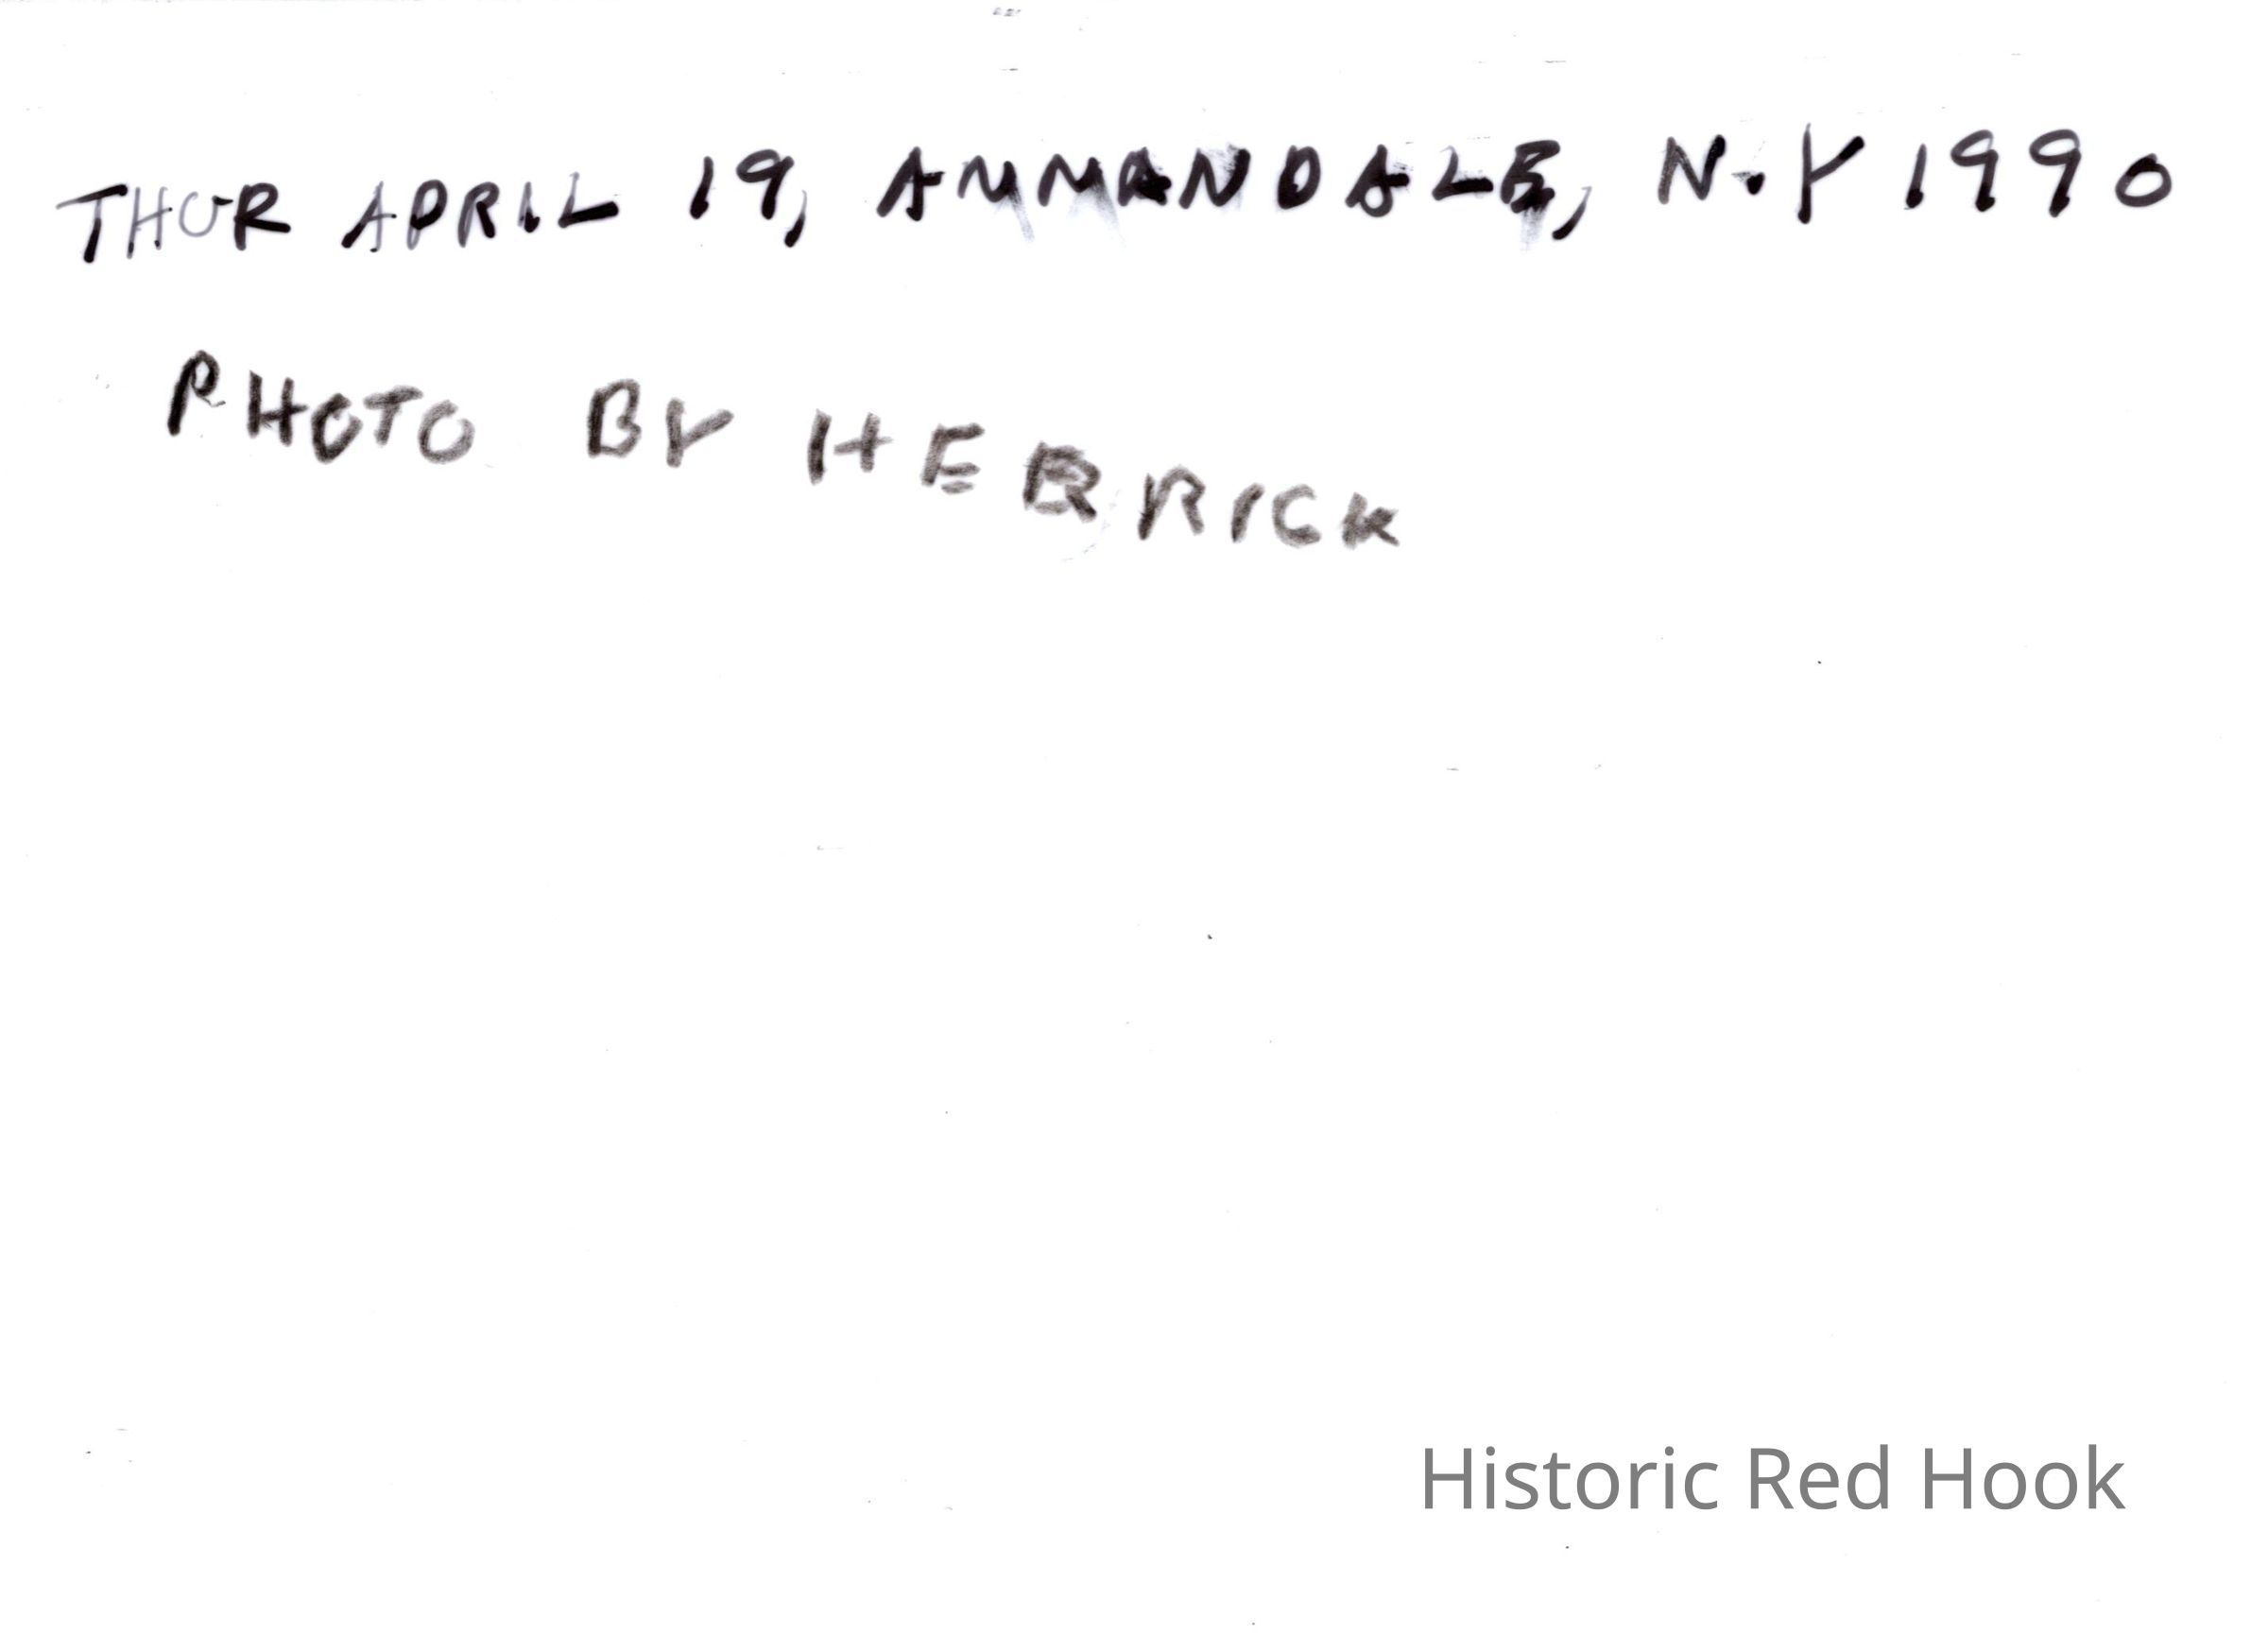 THUR APRIL 19, ANNANDALE, N.Y 1990
PHOTO BY HERRICK
Historic Red Hook